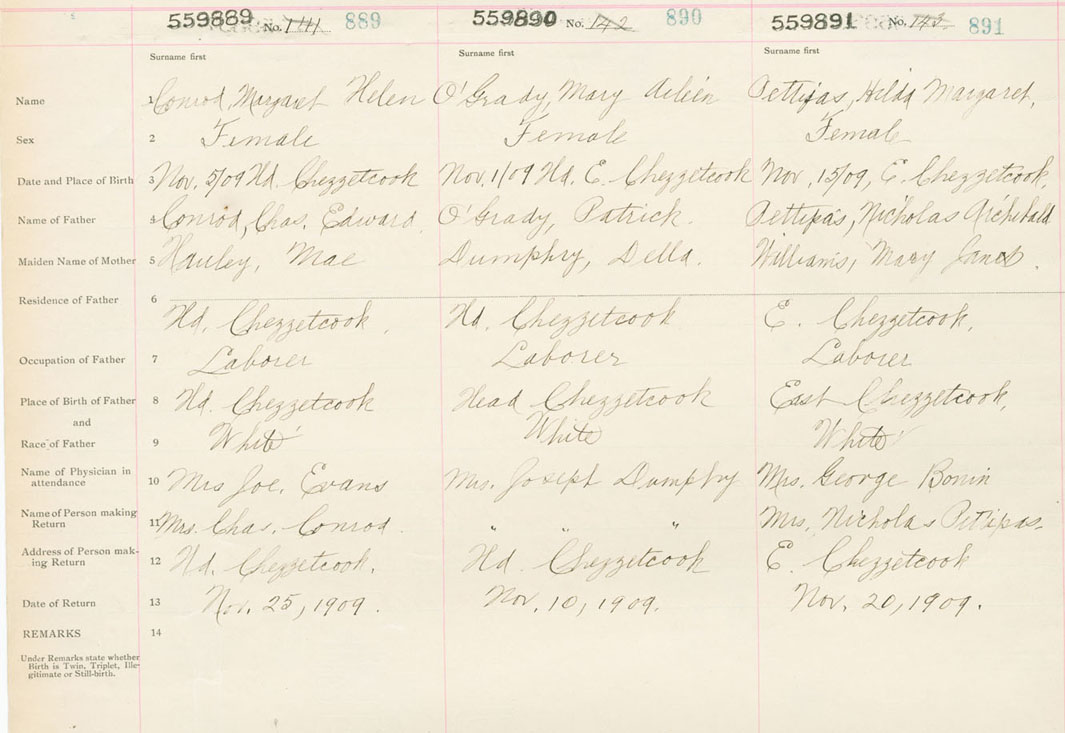 559889 No. 141 889 559890 No. 142 890 559891 No. 143 891
Surname first Surname first Surname first
Name 1 Conrod, Margaret Helen O'Grady, Mary Aileen Pettipas, Hilda Margaret,
Sex 2 Female Female Female
Date and Place of Birth 3 Nov. 5/09 Hd. Chezzetcook Nov. 1/09 Hd. E. Chezzetcook Nov. 15/09, E. Chezzetcook.
Name of Father 4 Conrod, Chas. Edward. O'Grady, Patrick. Pettipas, Nicholas Archibald
Maiden Name of Mother 5 Mae Dumphry, Della. Williams, Mary
Residence of Father 6
Hd. Chezzetcook. Hd. Chezzetcook E. Chezzetcook,
Occupation of Father 7 Laborer Laborer Laborer
Place of Birth of Father 8 Hd. Chezzetcook Head Chezzetcook East Chezzetcook,
and
Race of Father 9 White White White
Name of Physician in
attendance 10 Mrs Joe. Evans Mrs. Joseph Dumphry Mrs. George Bonin
Name of Person making
Return 11 Mrs. Chas. Conrod. " " " Mrs, Nicholas Petipas.
Address of Person mak-
ing Return 12 Hd. Chezzetcook. Hd. Chezzetcook E. Chezzetcook
Date of Return 13 Nov. 25, 1909. Nov. 10, 1909. Nov. 20, 1909.
REMARKS 14
Under Remarks state whether
Birth is Twin, Triplet, Ille-
gitimate or Still-birth.